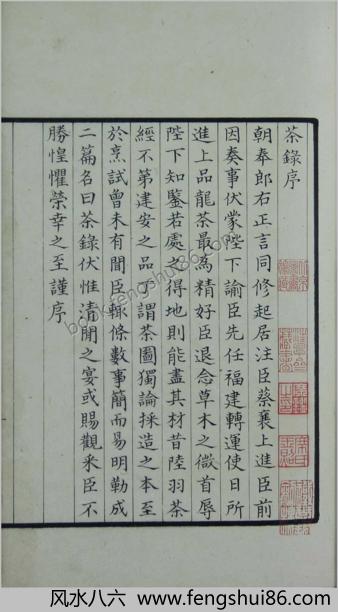 茶錄序
朝奉郎右正言同修起居注臣蔡襄上進臣前
因奏事伏蒙陛下諭臣先任福建轉運使日所
進上品龍茶最為精好臣退念草木之微首辱
陛下知鑒若處之得地則能盡其材昔陸羽茶
經不第建安之品丁謂茶圖獨論採造之本至
於烹試曾未有聞臣輒條數事簡而易明勒成
二篇名曰茶錄伏惟清閒之宴或賜觀采臣不
勝惶懼榮幸之至謹序
book.fengshui86.com
风水八六 www.fengshui86.com